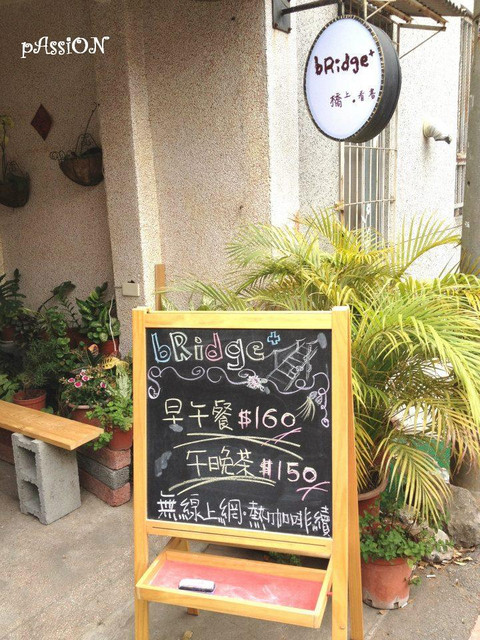 pAssiON
bRidge+
橋上.看書
bRidge+
早午餐 $160
午晚茶 $150
無線上網.熱咖啡續